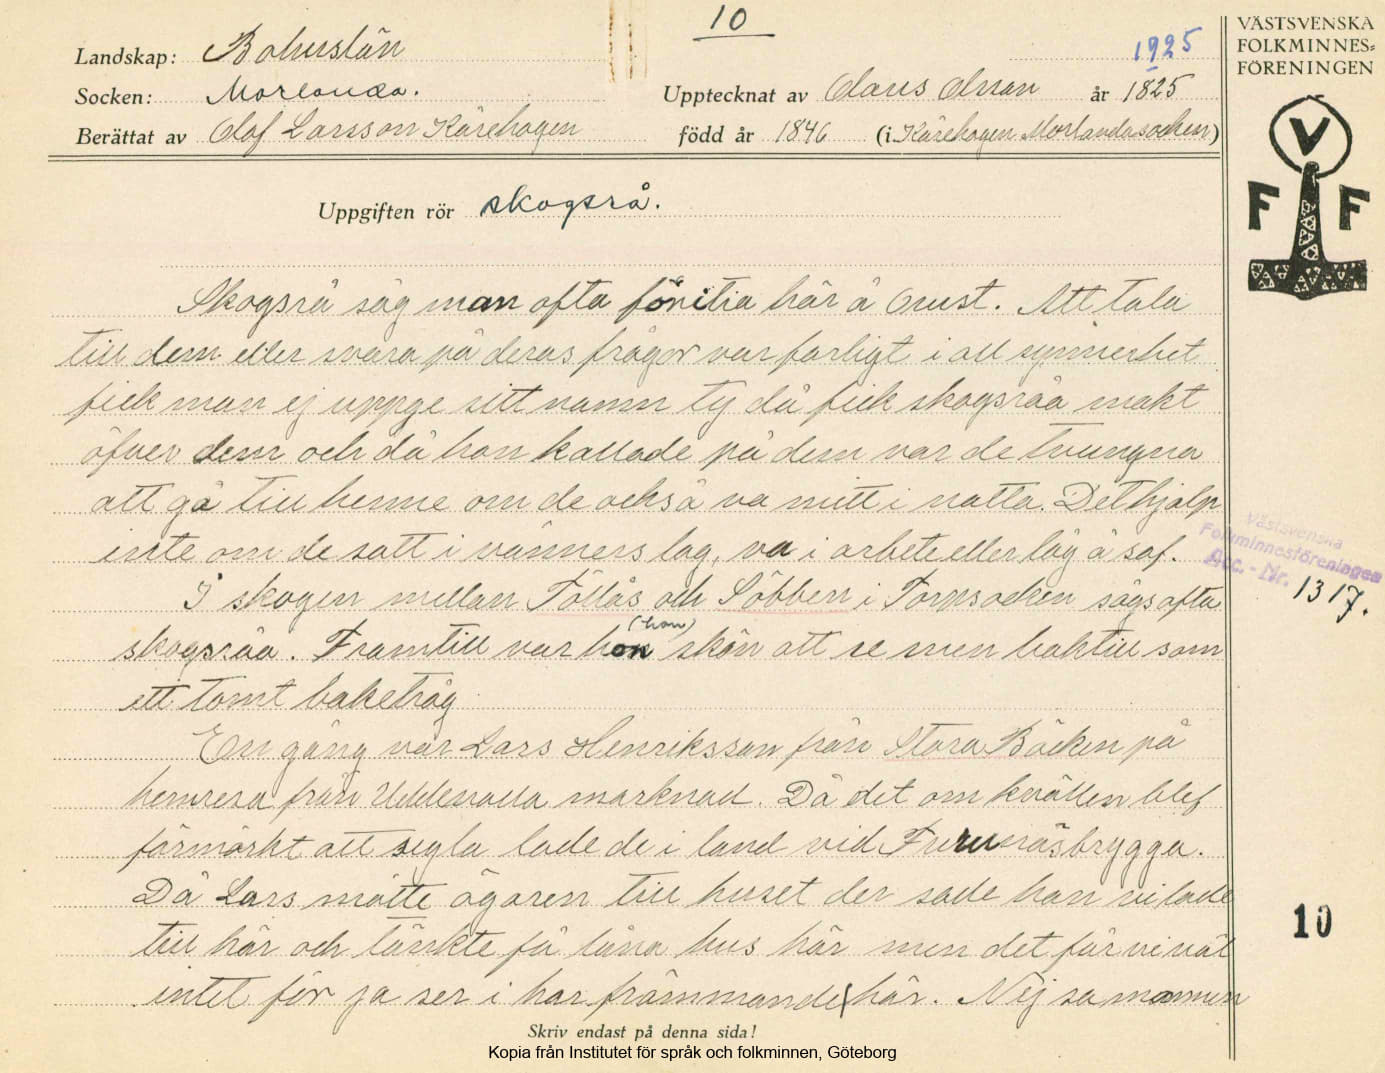 10
Landskap: Bohuslän
1925
Socken: Morlanda.
Upptecknat av Claus Olnan år 1825
Berättat av Olof Larsson Kärehogen
född år 1846 (i Kärehogen Morlanda socken)
VÄSTSVENSKA
FOLKMINNES=
FÖRENINGEN
V
F F
Uppgiften rör skogsrå.
Skogsrå såg man ofta föritia här å Orust. Att tala
till dem eller svara på deras frågor var farligt i all synnerhet
fick man ej uppge sitt namn ty då fick skogsråa makt
öfver dem och då hon kallade på dem var de tvungna
att gå till henne om de också va mitt i natta. Det hjalp
inte om de satt i vänners lag, va i arbete eller låg å sof.
I skogen mellan Föllås och Söbben i Torpsocken sågs ofta
(hon)
skogsråa. Framtill var hon skön att se men baktill som
ett tomt baketråg
En gång var Lars Henriksson från Stora Bäcken på
hemresa från Uddevalla marknad. Då det om kvällen blef
förmörkt att segla lade de i land vid Furunäsbrygga.
Då Lars mötte ägaren till huset der sade han vi lade
till här och tänkte få låna hus här men det får vi väl
intet för ja ser i har främmande här. Nej sa mannen
Västsvenska
Folkminnesföreningen
Acc.-Nr. 1317.
10
Skriv endast på denna sida!
Kopia från Institutet för språk och folkminnen, Göteborg